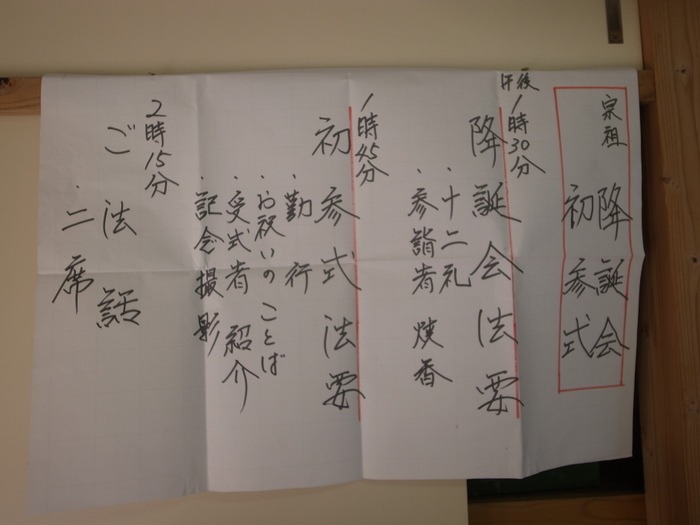 宗祖 降誕会
初参式
午後
1時30分
降誕会法要
・十二礼
・参詣者 焼香
1時45分
初参式法要
・勤行
・お祝いのことば
・受式者 紹介
・記念撮影
2時15分
ご法話
・二席